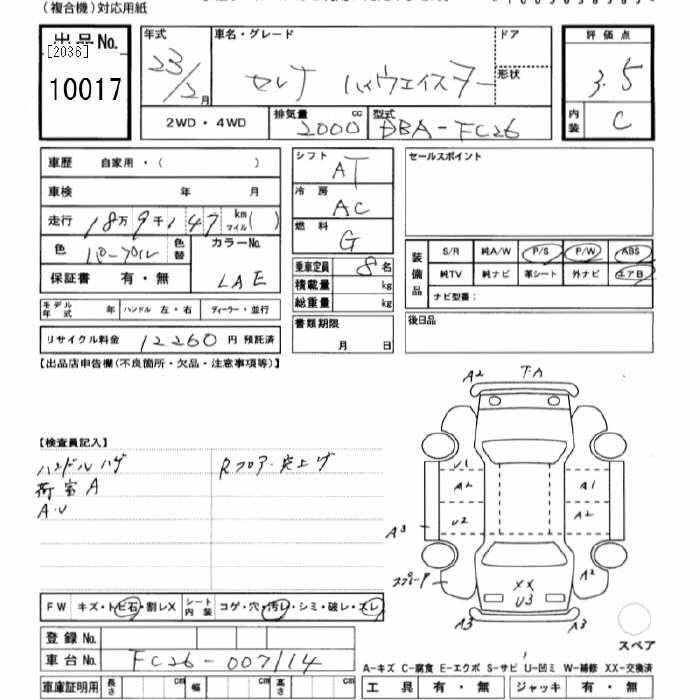 (複合機)対応用紙
出品No.
[2036]
10017
年式
23/2月
車名・グレード
セレナ ハイウェイスター
ドア
形状
評価点
3.5
内装
C
2WD・4WD
排気量
2000cc
型式
DBA-FC26
車歴 自家用・( )
車検 年 月
走行 18万9千147 km マイル( )
色 パープル 色替
カラーNo.
LAE
保証書 有・無
モデル年式 年 ハンドル 左・右 ディーラー・並行
リサイクル料金 12260円 預託済
シフト
AT
冷房
AC
燃料
G
乗車定員 8名
積載量 kg
総重量 kg
書類期限
月 日
セールスポイント
装備品
S/R 純A/W P/S P/W ABS
純TV 純ナビ 革シート 外ナビ エアB
ナビ型番:
後日品
【出品店申告欄(不良箇所・欠品・注意事項等)】
【検査員記入】
ハンドルハゲ
荷室A
A.U
Rフロアー突上げ
A2 T・A
U1
A2 A1
U2 A2
A3
スプレー
A2
XX
U3
A3 A3
スペア
FW キズ・トビ石・割レX
シート内装 コゲ・穴・汚レ・シミ・破レ・スレ
登録No.
車台No. FC26-007114
車庫証明用 長さ cm 幅 cm 高さ cm
A-キズ C-腐食 E-エクボ S-サビ U-凹ミ W-補修 XX-交換済
工具 有・無 ジャッキ 有・無